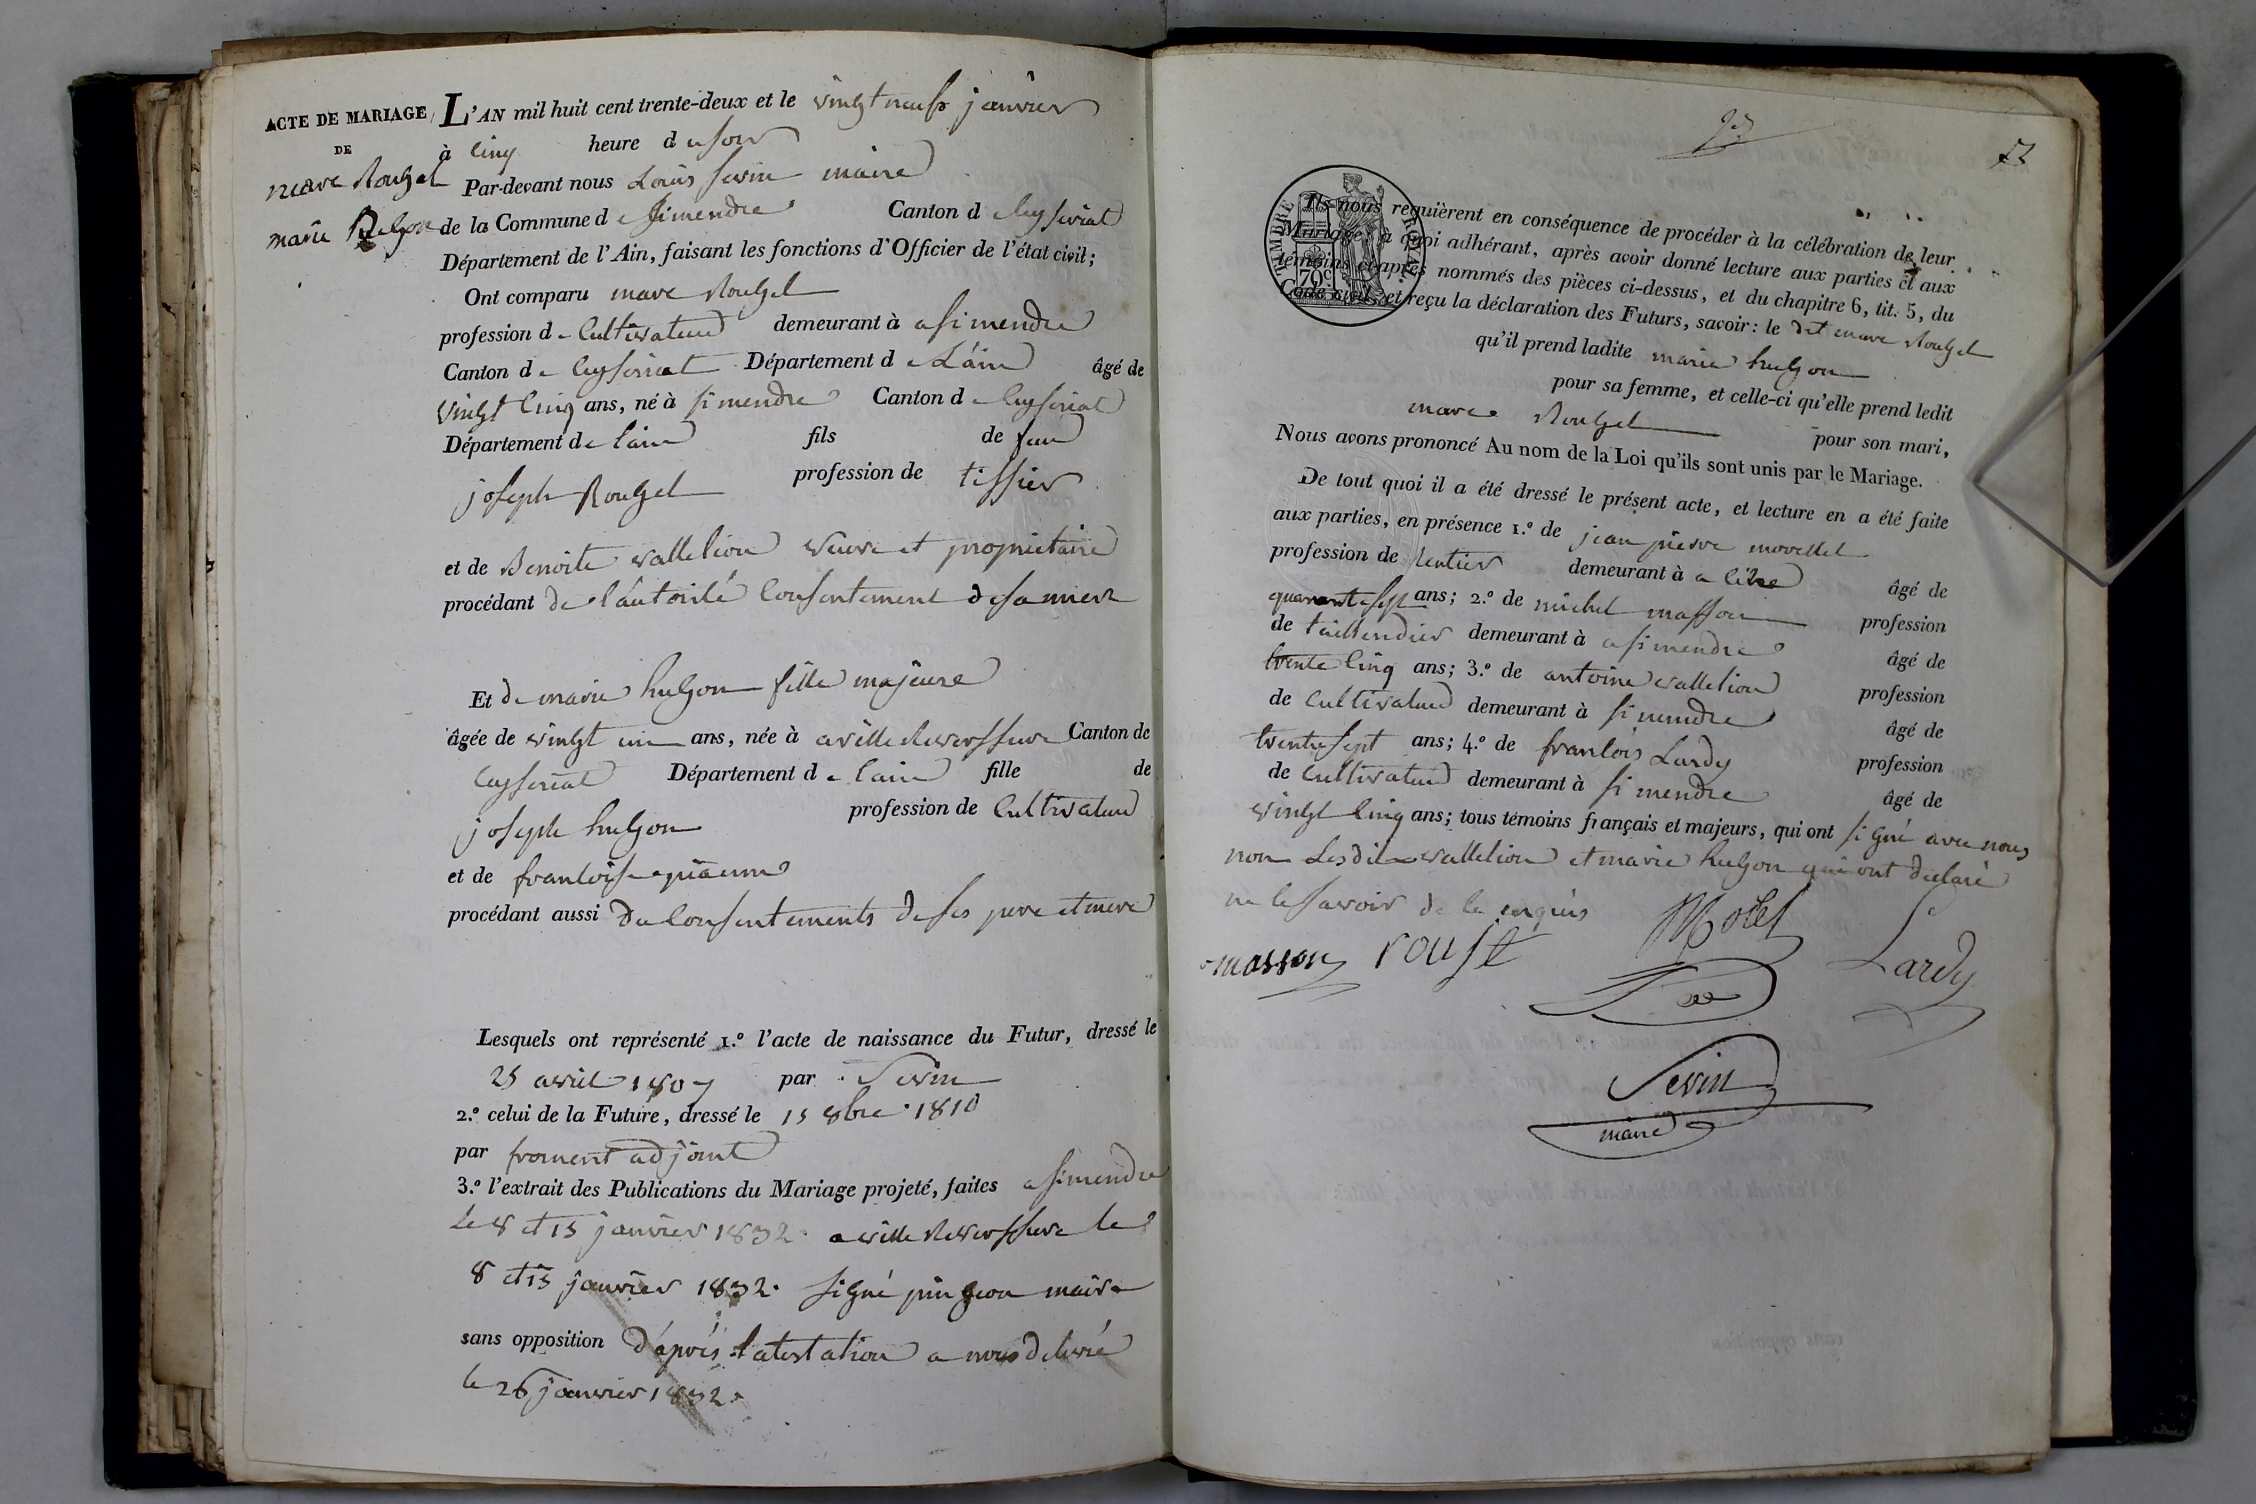 ACTE DE MARIAGE
DE
marc Rougel
marie
L'AN mil huit cent trente-deux et le vingt neuf janvier
à cinq heure du soir
Par-devant nous Louis sevin maire
de la Commune de simendre Canton de ceyseriat
Département de l'Ain, faisant les fonctions d'Officier de l'état civil;
Ont comparu marc Rougel
profession de cultivateur demeurant à a simendre
Canton de ceyseriat Département de L'ain âgé de
vingt cinq ans, né à simendre Canton de ceyseriat
Département de l'ain fils de feu
joseph Rougel profession de tissier
et de Benoite vallelion veuve et proprietaire
procédant de l'autorité consentement de sa mere
Et de marie hugon fille majeure
âgée de vingt un ans, née à a villereversure Canton de
ceyseriat Département de l'ain fille de
joseph hugon profession de cultivateur
et de francoise
procédant aussi du consentements de ses pere et mere
Lesquels ont représenté 1.º l'acte de naissance du Futur, dressé le
25 avril 1807 par Sevin
2.º celui de la Future, dressé le 15 8bre 1810
par froment adjoint
3.º l'extrait des Publications du Mariage projeté, faites a simendre
le 8 et 15 janvier 1832. a villereversure le
8 et 15 janvier 1832. signé pingeon maire
sans opposition d'après l'atestation a nous delivré
le 26 janvier 1832.
TIMBRE ROYAL
70c
Ils nous requièrent en conséquence de procéder à la célébration de leur
Mariage; à quoi adhérant, après avoir donné lecture aux parties et aux
témoins ci-après nommés des pièces ci-dessus, et du chapitre 6, tit. 5, du
Code civil, et reçu la déclaration des Futurs, savoir: le dit marc Rougel
qu'il prend ladite marie hugon
pour sa femme, et celle-ci qu'elle prend ledit
marc Rougel pour son mari,
Nous avons prononcé Au nom de la Loi qu'ils sont unis par le Mariage.
De tout quoi il a été dressé le présent acte, et lecture en a été faite
aux parties, en présence 1.º de jean pierre morellet
profession de Rentier demeurant à âgé de
quarante sept ans; 2.º de michel masson profession
de taillendier demeurant à a simendre âgé de
trente cinq ans; 3.º de antoine vallelion profession
de cultivateur demeurant à simendre âgé de
trente sept ans; 4.º de francois Lardy profession
de cultivateur demeurant à simendre âgé de
vingt cinq ans; tous témoins français et majeurs, qui ont signé avec nous
non Lesdit vallelion et marie hugon qui ont declaré
ne le savoir de ce requis
masson Lardy
Sevin
maire